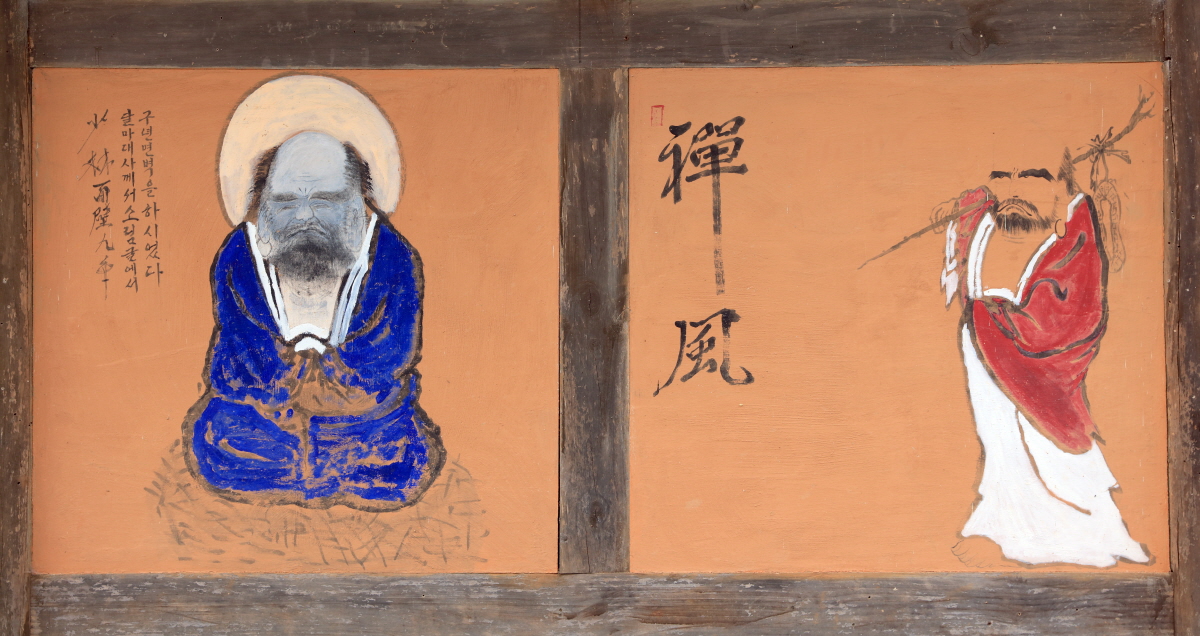 少林面壁九年
달마대사께서소림굴에서
구년면벽을하시었다
禪風